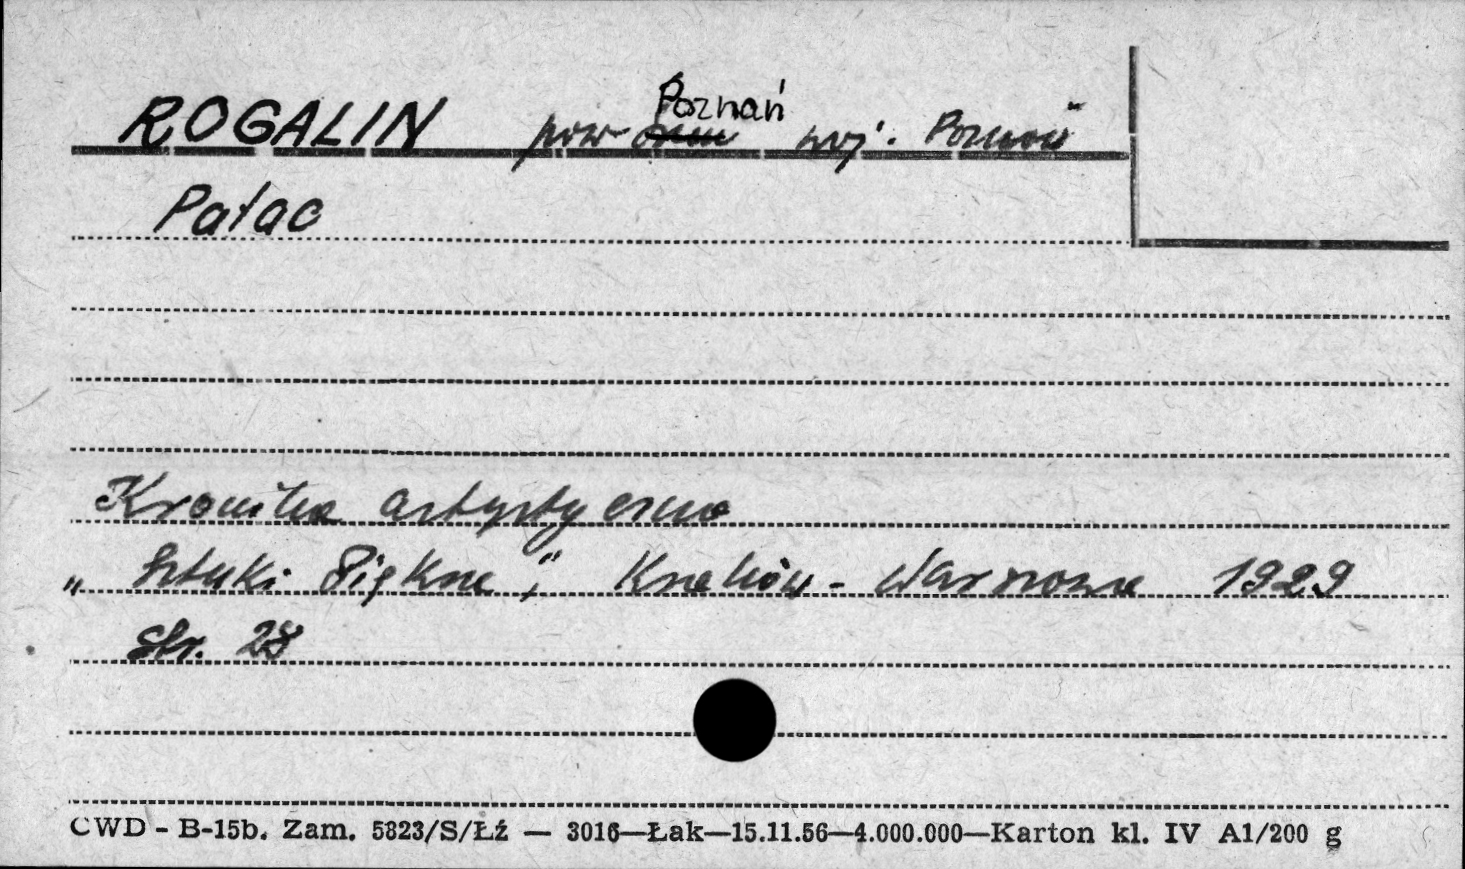 ROGALIN pow Poznań woj. Poznań
Pałac
Kronika artystyczna
„Sztuki Piękne", Kraków - Warszawa 1929
str. 28
CWD - B-15b. Zam. 5823/S/Łź — 3016—Łak—15.11.56—4.000.000—Karton kl. IV A1/200 g